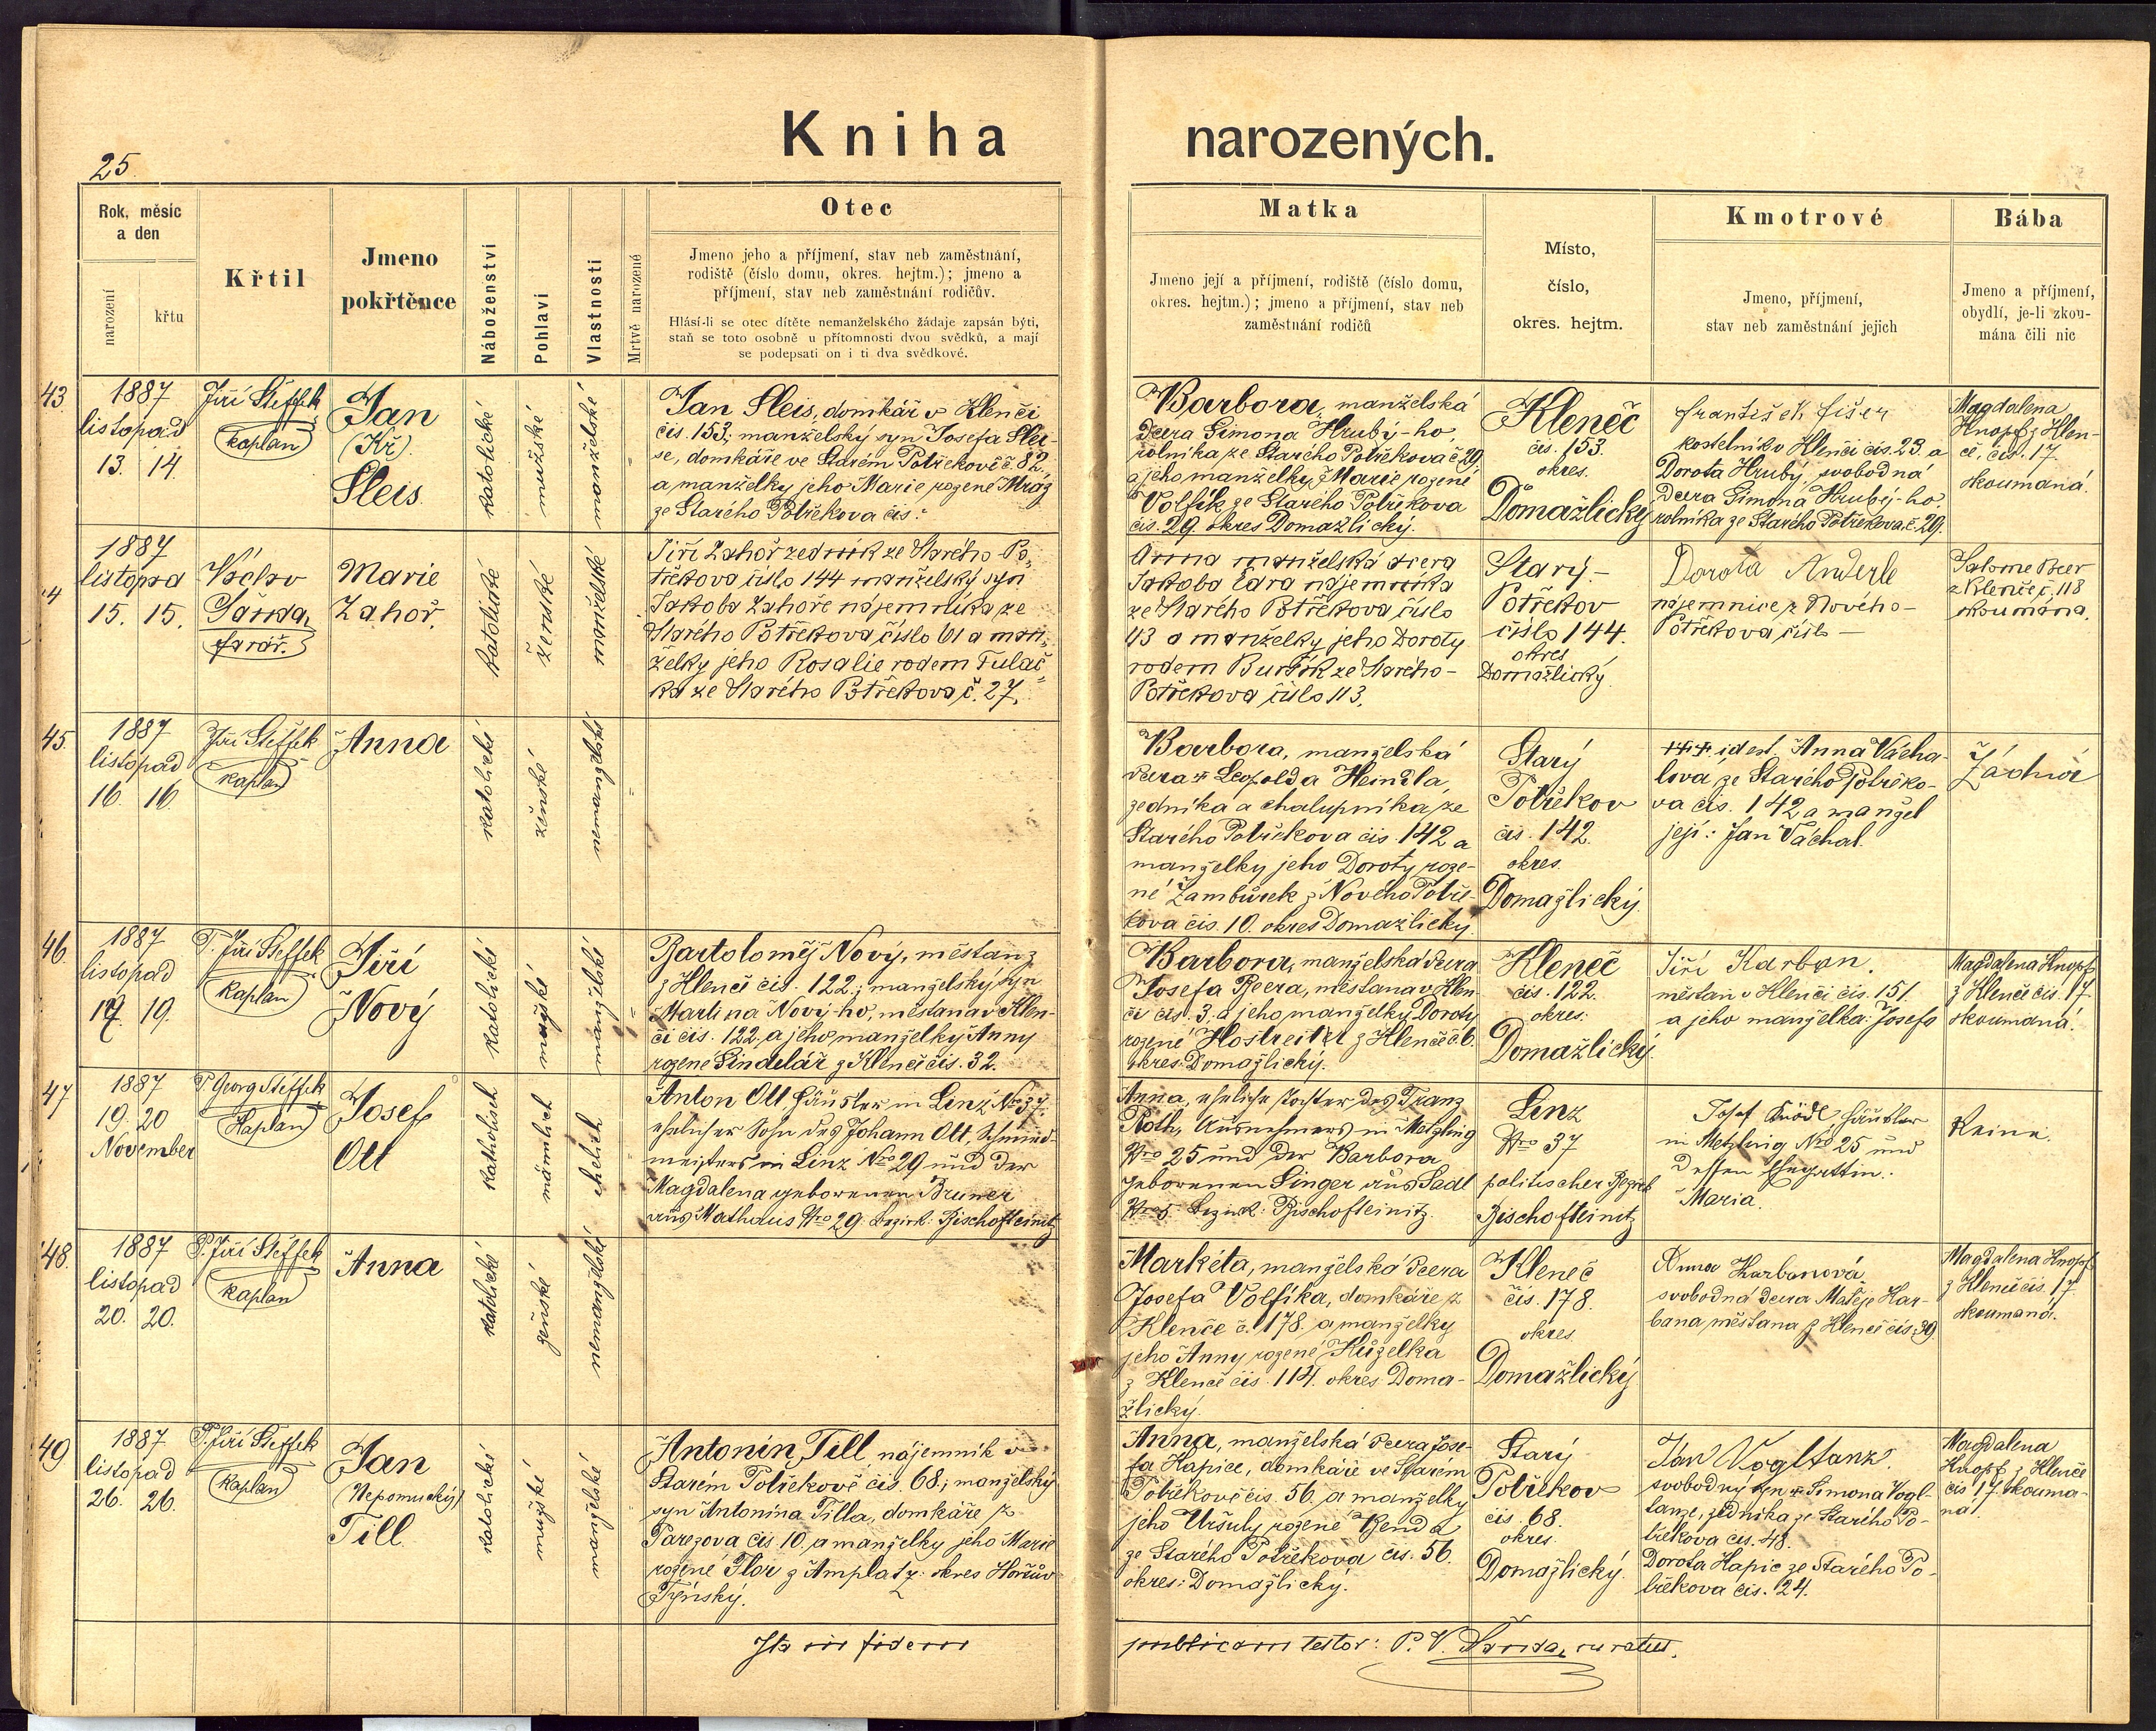 25
Kniha narozených.
Rok, měsíc
a den
narození
křtu
Křtil
Jmeno
pokřtěnce
Náboženství
Pohlaví
Vlastnosti
Mrtvě narozené
Otec
Jmeno jeho a příjmení, stav neb zaměstnání,
rodiště (číslo domu, okres. hejtm.); jmeno a
příjmení, stav neb zaměstnání rodičův.
Hlásí-li se otec dítěte nemanželského žádaje zapsán býti,
staň se toto osobně u přítomnosti dvou svědků, a mají
se podepsati on i ti dva svědkové.
Matka
Jmeno její a příjmení, rodiště (číslo domu,
okres. hejtm.); jmeno a příjmení, stav neb
zaměstnání rodičů
Místo,
číslo,
okres. hejtm.
Kmotrové
Jmeno, příjmení,
stav neb zaměstnání jejich
Bába
Jmeno a příjmení,
obydlí, je-li zkou-
mána čili nic
43
1887
listopad
13. 14.
Jiří Steffek
kaplan
Jan
(Kř.)
Sleis
katolické
mužské
manželské
Jan Sleis, domkář v Klenči
čís. 153; manželský syn Josefa Slei-
se, domkáře ve Starém Potřekově č. 82.
a manželky jeho Marie rozené Mráz
ze Starého Potřekova čís:
Barbora, manželská
dcera Simona Hrubý-ho,
rolníka ze Starého Potřekova č 29
a jeho manželky Marie rozené
Volfík ze Starého Potřekova
čís. 29. okres Domažlický.
Kleneč
čís. 153.
okres.
Domažlický
František Fišer
kostelník v Klenči čís. 23. a
Dorota Hrubý, svobodná
dcera Simona Hrubý-ho
rolníka ze Starého Potřekova. č. 29.
Magdalena
Knopf z Klen-
če, čís. 17.
skoumaná.
44
1887
listopad
15. 15.
Václav
Šanda,
farář.
Marie
Zahoř.
katolické
ženské
manželské
Jiří Zahoř zedník ze Starého Po-
třekova číslo 144 manželský syn
Jakoba Zahoře nájemníka ze
Starého Potřekova číslo 61 a man-
želky jeho Rosalie rodem Tulač-
ka ze Starého Potřekova č. 27.
Anna manželská dcera
Jakoba Čára nájemníka
ze Starého Potřekova číslo
43 a manželky jeho Doroty
rodem Buršík ze Starého-
Potřekova číslo 113.
Starý-
Potřekov
číslo 144.
okres
Domažlický.
Dorota Anderle
nájemnice z Nového-
Potřekova číslo —
Salome Beer
z Klenče č. 118
skoumána.
45.
1887
listopad
16. 16.
Jiří Steffek
kaplan
Anna
katolické
ženské
nemanželské
Barbora, manželská
dcera + Leopolda Heindla,
zedníka a chalupníka ze
Starého Potřekova čís. 142 a
manželky jeho Doroty roze-
né Žambůrek z Nového Potře-
kova čís. 10. okres Domažlický.
Starý
Potřekov
čís. 142.
okres.
Domažlický.
+++ id est. Anna Vácha-
lova ze Starého Potřeko-
va čís. 142 a manžel
její: Jan Váchal.
Žádná
46.
1887
listopad
19. 19.
P. Jiří Steffek
kaplan
Jiří
Nový
katolické
mužské
manželské
Bartoloměj Nový, měštan z
z Klenče čís. 122.; manželský syn
Martina Nový-ho, měštana v Klen-
či čís. 122. a jeho manželky Anny
rozené Sindelář z Klenče čís. 32.
Barbora, manželská dcera
Josefa Beera, měštana v Klen-
či čís. 3. a jeho manželky Doroty
rozené Hostreiter z Klenče č 6.
okres: Domažlický.
Kleneč
čís. 122.
okres:
Domažlický.
Jiří Karban.
měštan v Klenči čís. 151.
a jeho manželka: Josefa
Magdalena Knopf
z Klenče čís. 17.
skoumaná.
47
1887
19. 20
November
P. Georg Steffek
Kaplan
Josef
Ott
katholisch
männlich
ehelich
Anton Ott Häusler in Linz Nro 37.
ehelicher Sohn des Johann Ott, Schmied-
meisters in Linz Nro 29 und der
Magdalena geborenen Bruner
aus Mathaus Nro 29. Bezirk: Bischofteinitz
Anna, eheliche Tochter des Franz
Roth, Ausnehmers in Metzling
Nro 25 und der Barbora
geborenen Singer aus Sadl
Nro 5. Bezirk: Bischofteinitz.
Linz
Nro 37
politischer Bezirk
Bischofteinitz
Josef Knödl Häusler
in Metzling Nro 25 und
Dessen Ehegattin:
Maria.
Keine.
48.
1887
listopad
20. 20.
P. Jiří Steffek
kaplan
Anna
katolické
ženské
nemanželské
Markéta, manželská dcera
Josefa Volfíka, domkáře z
Klenče č. 178. a manželky
jeho Anny rozené Kuželka
z Klenče čís. 114. okres Doma-
žlický.
Kleneč
čís. 178.
okres.
Domažlický
Anna Karbanová
svobodná dcera Matěje Kar-
bana měštana z Klenče čís. 39.
Magdalena Knopf
z Klenče čís. 17.
skoumaná.
49
1887
listopad
26. 26.
P. Jiří Steffek
kaplan
Jan
(Nepomucký)
Till.
katolické
mužské
manželské
Antonín Till, nájemník v
Starém Potřekově čís. 68; manželský
syn Antonína Tilla, domkáře z
Parezova čís 10. a manželky jeho Marie
rozené Flor z Amplatz: okres Horšův-
Týnský.
Anna, manželská dcera Jose-
fa Hapice, domkáře ve Starém
Potřekově čís. 56. a manželky
jeho Uršuly rozené Benda
ze Starého Potřekova čís. 56.
okres: Domažlický.
Starý
Potřekov
čís. 68.
okres.
Domažlický.
Jan Vogltanz.
svobodný syn + Simona Vogl-
tanze, zedníka ze Starého Po-
třekova čís. 48.
Dorota Hapic ze Starého Po-
třekova čís. 124.
Magdalena
Knopf z Klenče
čís 17. skouma-
ná.
Ita in fidem publicam testor: P. V. Šanda, curatus.